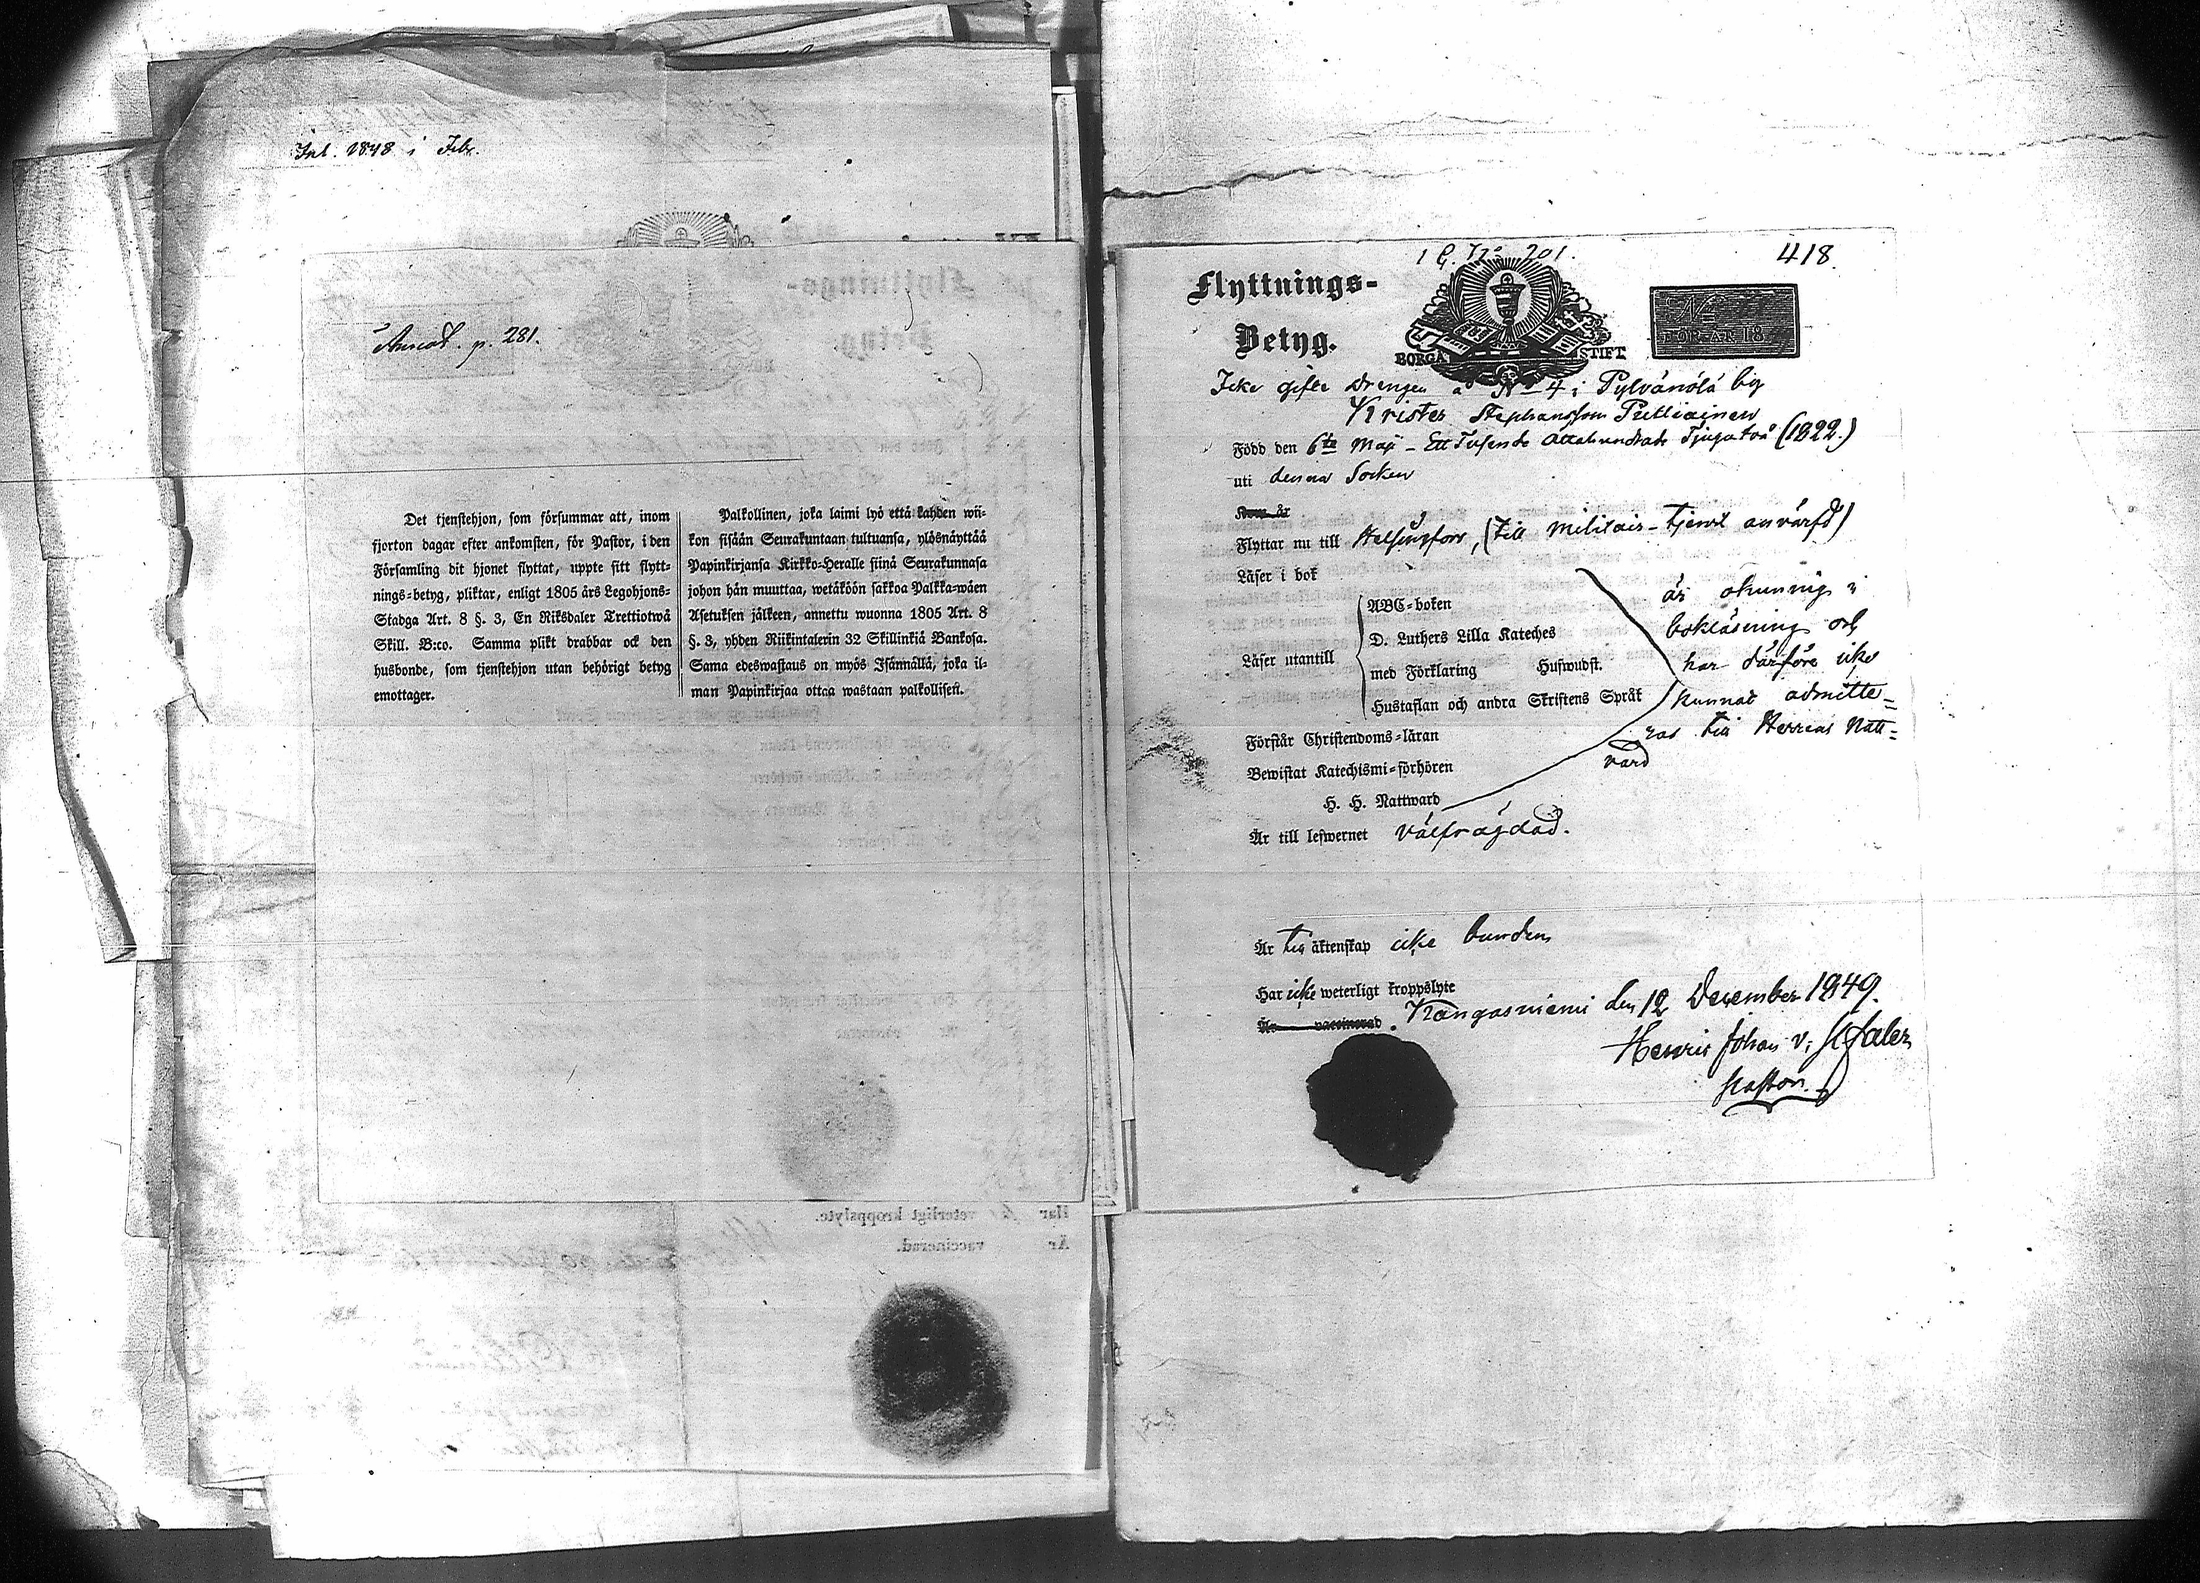 Inl. 1848 i Febr.
Annot. p. 281.
Det tjenstehjon, som försummar att, inom
fjorton dagar efter ankomsten, för Pastor, i den
Församling dit hjonet flyttat, uppte sitt flytt-
nings-betyg, pliktar, enligt 1805 års Legohjons-
Stadga Art. 8 §. 3, En Riksdaler Trettiotwå
Skill. B:co. Samma plikt drabbar ock den
husbonde, som tjenstehjon utan behörigt betyg
emottager.
Palkollinen, joka laimi lyö että kahden wii-
kon sisään Seurakuntaan tultuansa, ylösnäyttää
Papinkirjansa Kirkko-Heralle siinä Seurakunnasa
johon hän muuttaa, wetäköön sakkoa Palkka-wäen
Asetuksen jälkeen, annettu wuonna 1805 Art. 8
§. 3, yhden Riikintalerin 32 Skillinkiä Bankosa.
Sama edeswastaus on myös Isännällä, joka il-
man Papinkirjaa ottaa wastaan palkollisen.
Har veterligt kroppslyte.
Är vaccinerad.
201.
418.
Flyttnings-
Betyg.
BORGÅ STIFT
No
FÖR ÅR 18
Icke gifte Drengen å No 4 i Pylvänälä by
Krister Stephansson Pulliainen
Född den 6te Maji - Ett Tusende Ottahundrade Tjugotvå (1822.)
uti denna Socken
Kom år
Flyttar nu till Helsingfors, (till Militair-tjenst anvärfd)
Läser i bok
ABC-boken
D. Luthers Lilla Kateches
Läser utantill
med Förklaring Hufwudst.
Hustaflan och andra Skriftens Språk
Förstår Christendoms-läran
Bewistat Katechismi-förhören
H. H. Nattward
är okunnig i
bokläsning och
har därföre icke
kunnat admitte=
ras till Herrens Natt=
vard
Är till lefwernet välfrägdad.
Är till äktenskap icke bunden
Har icke weterligt kroppslyte
Är vaccinerad. Kangasniemi den 12 December 1849.
Henric Johan v:
Pastor.